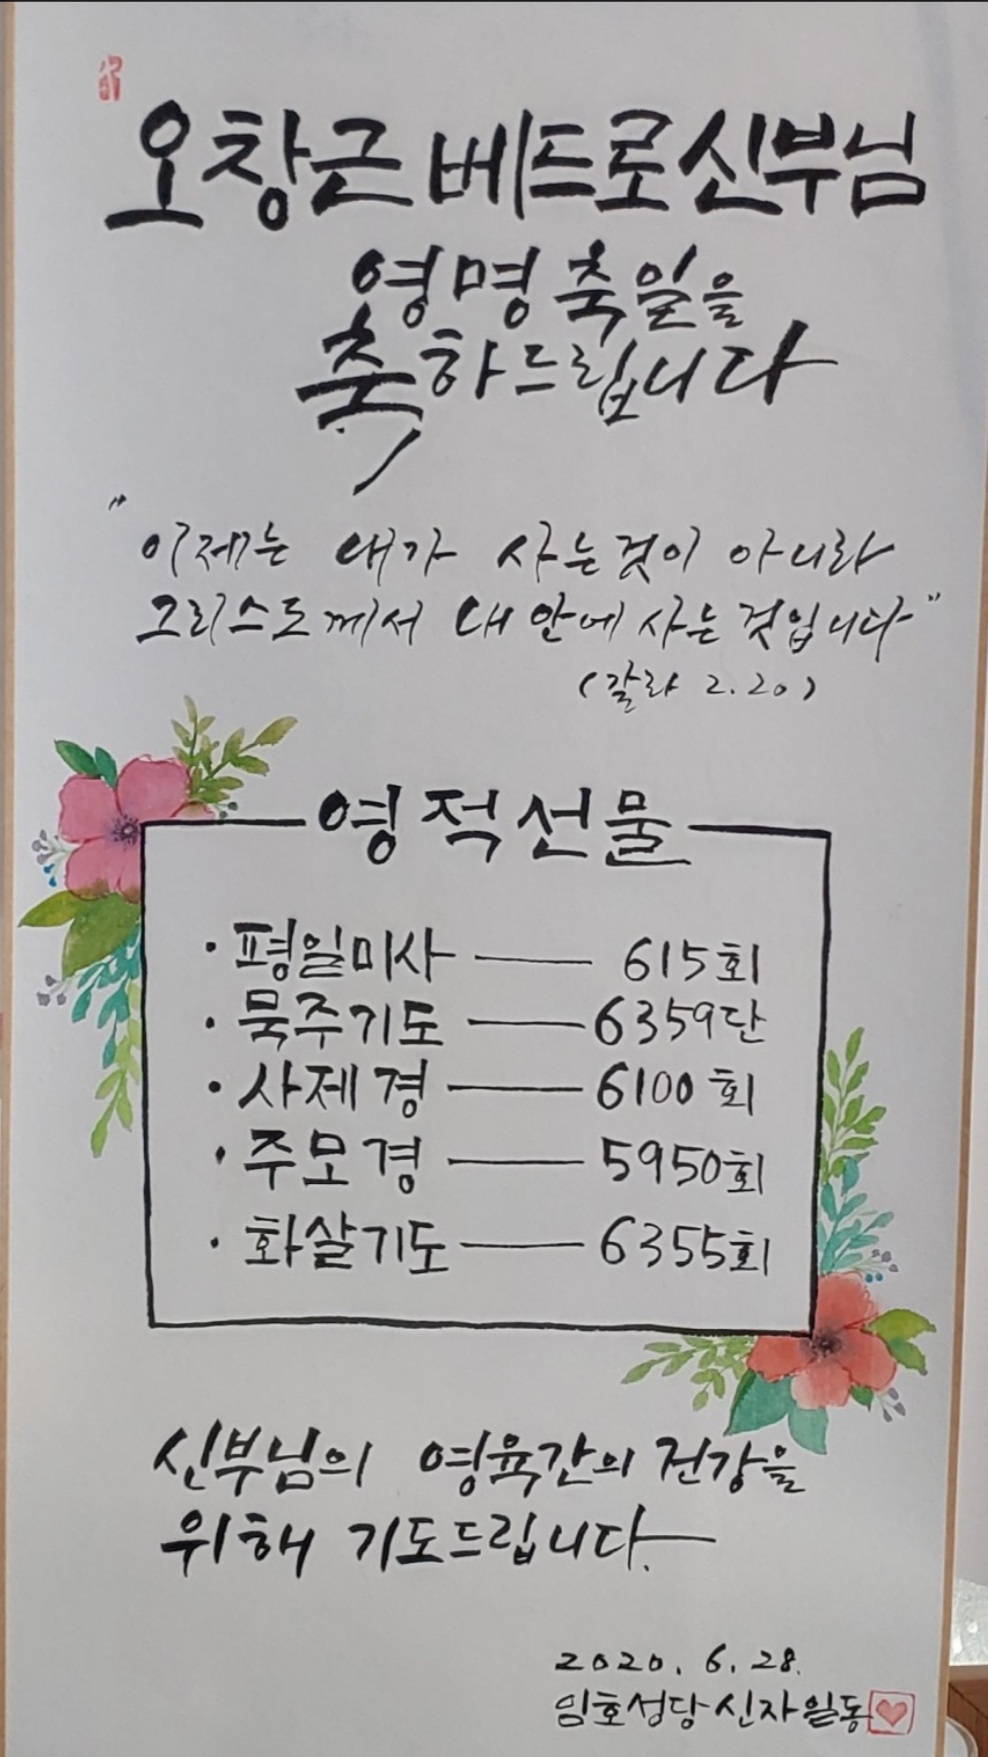 오창근 베드로 신부님
영명 축일을
축하드립니다
"이제는 내가 사는것이 아니라
그리스도께서 내 안에 사는 것입니다"
(갈라 2.20)
영적선물
· 평일미사 — 615회
· 묵주기도 — 6359단
· 사제경 — 6100회
· 주모경 — 5950회
· 화살기도 — 6355회
신부님의 영육간의 건강을
위해 기도드립니다.
2020. 6. 28.
임호성당 신자 일동